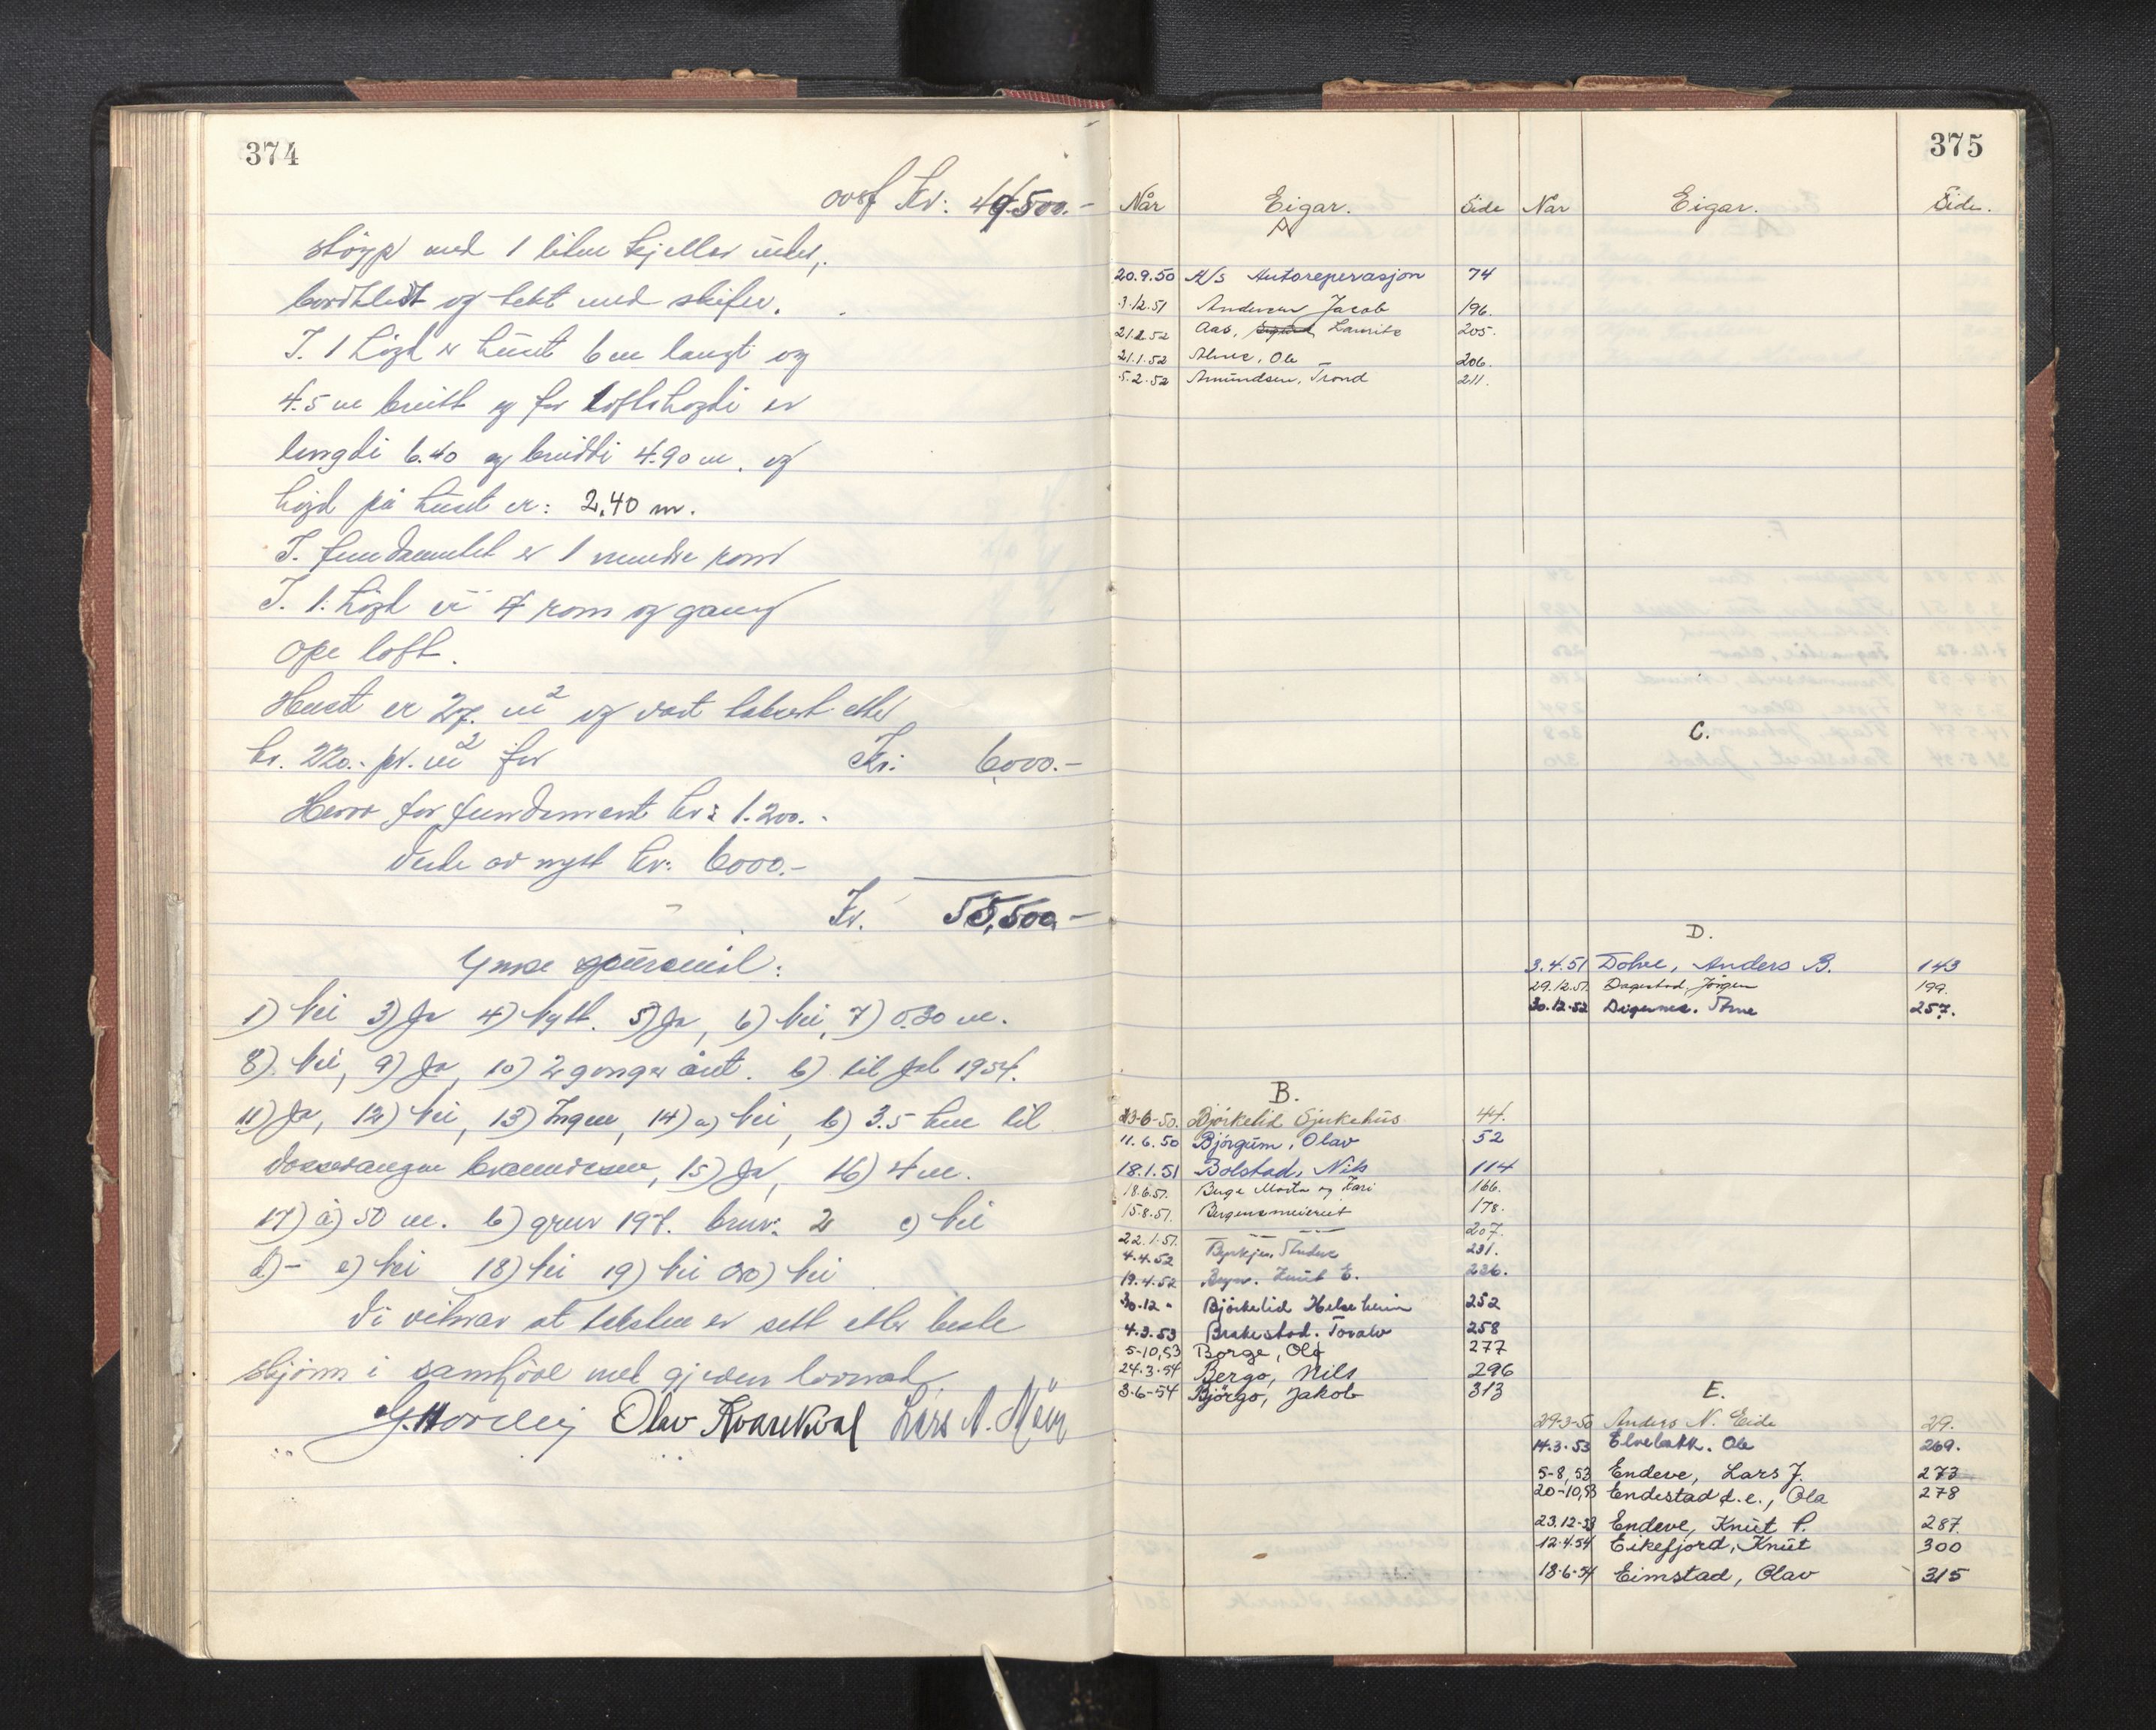 374
ovf Kr: 49.500.-
støypt med 1 liten kjellar under,
bordkledt og tekt med skifer.
I. 1 høgd er huset 6 m langt og
4.5 m breitt og for loftshøgdi er
lengdi 6.40 og breiddi 4.90 m. og
høgd på huset er: 2,40 m.
I. fundamentet er 1 mindre rom
I. 1. høgd er 4 rom og gang
Ope loft.
Huset er 27. m² og vart taksert etter
kr. 220.- pr. m² for Kr: 6000.-
Herav for fundament kr: 1.200.-
Verde av nytt kr: 6000.-
Kr. 55,500.-
Ymse spursmål:
1) Nei 3) Ja 4) Nytt. 5) Ja, 6) Nei, 7) 0.30 m.
8) Nei, 9) Ja, 10) 2 gonger året. b) til Jol 1954.
11) Ja, 12) Nei, 13) Ingen, 14) a) Nei, b) 3.5 km til
Vossevangen brannvesen, 15) Ja, 16) 4 m.
17) a) 50 m. b) grunn 197. bruk: 2 c) Nei
d) - e) Nei 18) Nei 19) Nei 20) Nei
Vi vitnar at taksten er sett etter beste
skjønn i samhøve med gjevne lovnad.
Olav Kvarekval Lars N.
375
Når Eigar. Side Når Eigar. Side.
A
20.9.50 A/S Autoreperasjon 74
3.12.51 Andersen Jacob 196.
21.1.52 Aas, Lauritz 205.
21.1.52 Alme, Ole 206.
5.2.52 Amundsen, Trond 211.
C.
D.
3.4.51 Dolve, Anders B. 143
29.12.51 Dagestad, Jørgen 199.
30.12.52 Digernes. Arne 257.
B.
23-6-50. Bjørkelid Sjukehus 44.
11.6.50 Bjørgum, Olav 52
18.1.51 Bolstad, Nils 114
18.6.51. Berge Marta og Kari 166.
15.8.51. Bergensmeieriet 178.
22.1.51. — — — 207.
4.4.52 Byrkje, 231.
19.4.52 Knut E. 236.
30.12 " Bjørkelid Helseheim 252
4.3.53 Brakestad. Toralv 258
5-10,53 Borge, Ola 277
24.3.54 Bergo, Nils 296
3.6-54 Bjørgo, Jakob 313
E.
29-3-50 Anders N. Eide 29.
14.3.53 Elvebakk. Ole 269.
5-8,53 Endeve, Lars J. 273
20-10,53 Endestad d.e., Ola 278
23.12-53 Endeve, Knut P. 287.
12.4.54 Eikefjord, Knut 300
18-6-54 Eimstad, Olav 315